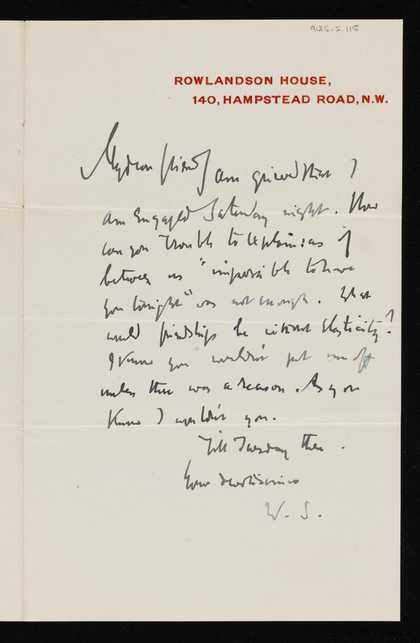 9125-S.115
ROWLANDSON HOUSE,
140, HAMPSTEAD ROAD, N.W.
My dear friend I am grieved that I
am engaged Saturday night. How
can you trouble to explain: as if
between us "impossible to have
you tonight" was not enough. What
would friendship be without elasticity?
I know you wouldn't put me off
unless there was a reason. As you
know I wouldn't you.
Till Tuesday then.
Your
W. S.